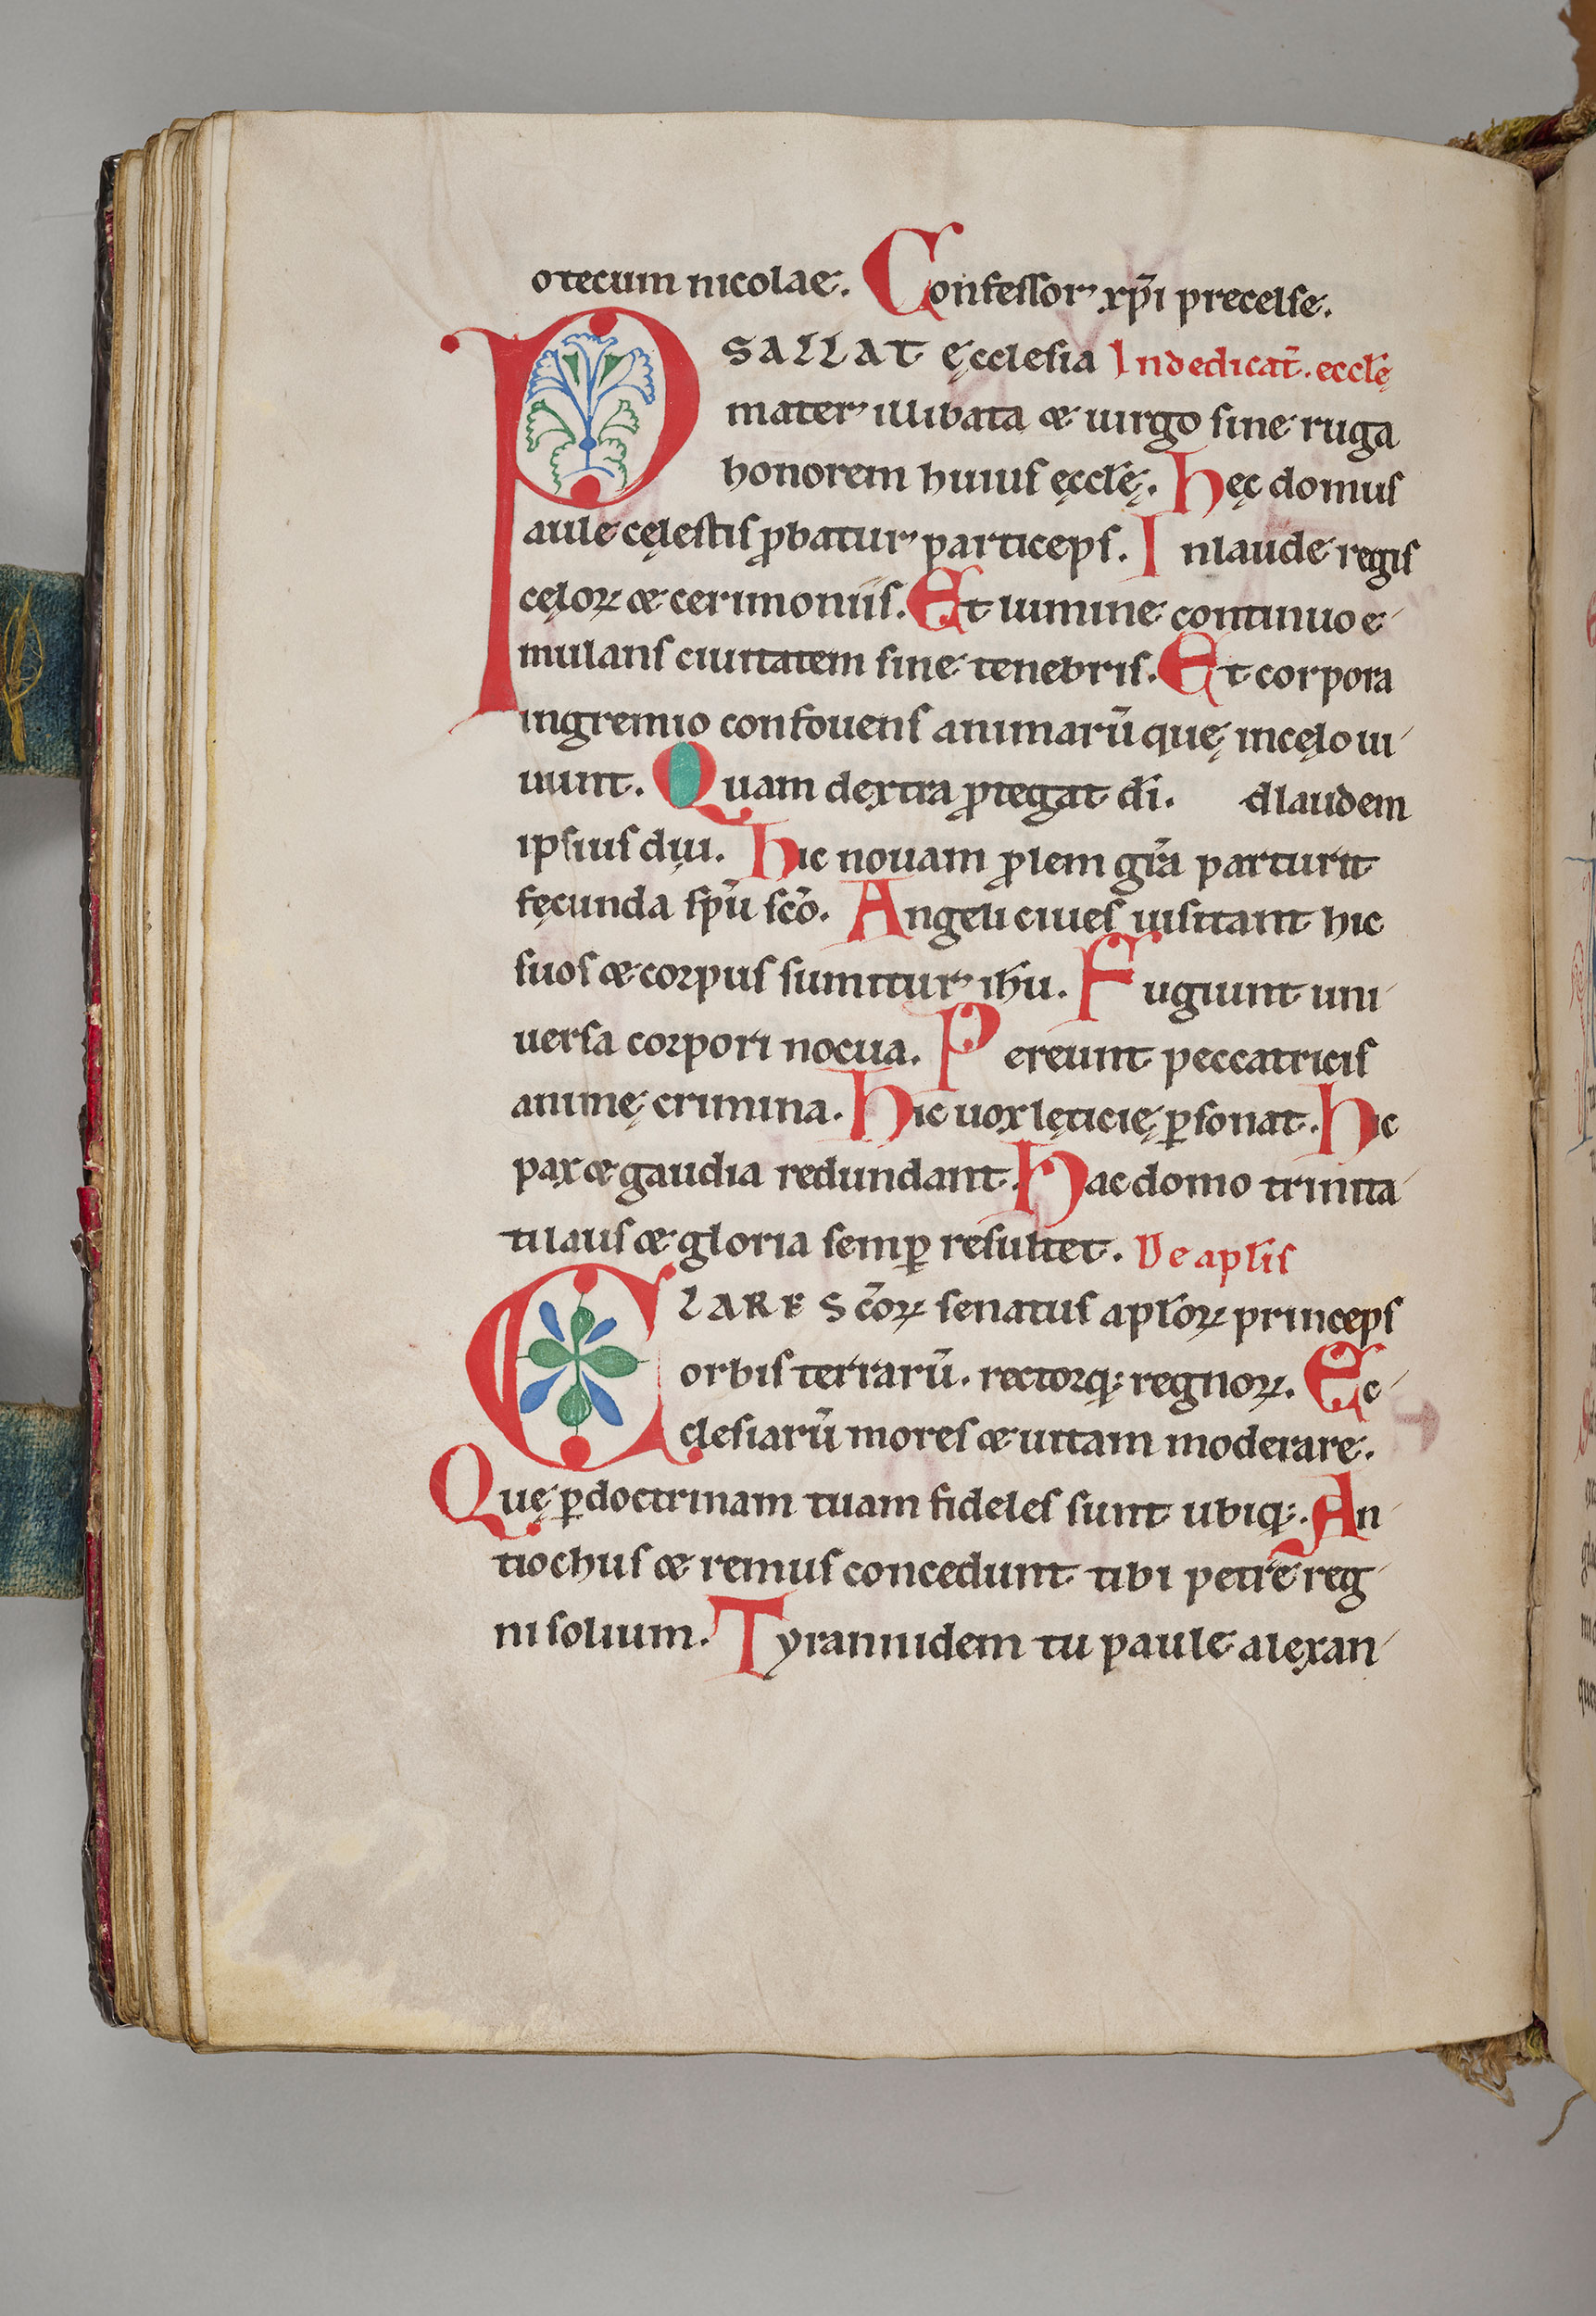 otecum nicolae. Confessor xp̄i precelse.
PSALLAT ęcclesia In dedicat̄. ecclę̄
mater illibata & uirgo sine ruga
honorem huius ęccl̄ę. hęc domus
aule cęlestis ꝓbatur particeps. In laude regis
cęloꝝ & cerimoniis. Et lumine continuo e-
mulans ciuitatem sine tenebris. Et corpora
in gremio confouens animarū quę in cęlo ui-
uunt. Quam dextra ꝓtegat dī. d laudem
ipsius diu. hic nouam ꝓlem gr̄a parturit
fęcunda sp̄u sc̄o. Angeli ciues uisitant hic
suos & corpus sumitur ih̄u. Fugiunt uni
uersa corpori nocua. Pereunt peccatricis
animę crimina. hic uox lęticię ꝑsonat. hic
pax & gaudia redundant. hac domo trinita
ti laus & gloria semꝑ resultet. De apl̄is
CLARE Sc̄oꝝ senatus apl̄oꝝ princeps
orbis terrarū. rectorq; regnoꝝ. Ec-
clesiarū mores & uitam moderare.
Quę ꝑ doctrinam tuam fideles sunt ubiq;. An-
tiochus & remus concedunt tibi petre reg
ni solium. Tyrannidem tu paule alexan-